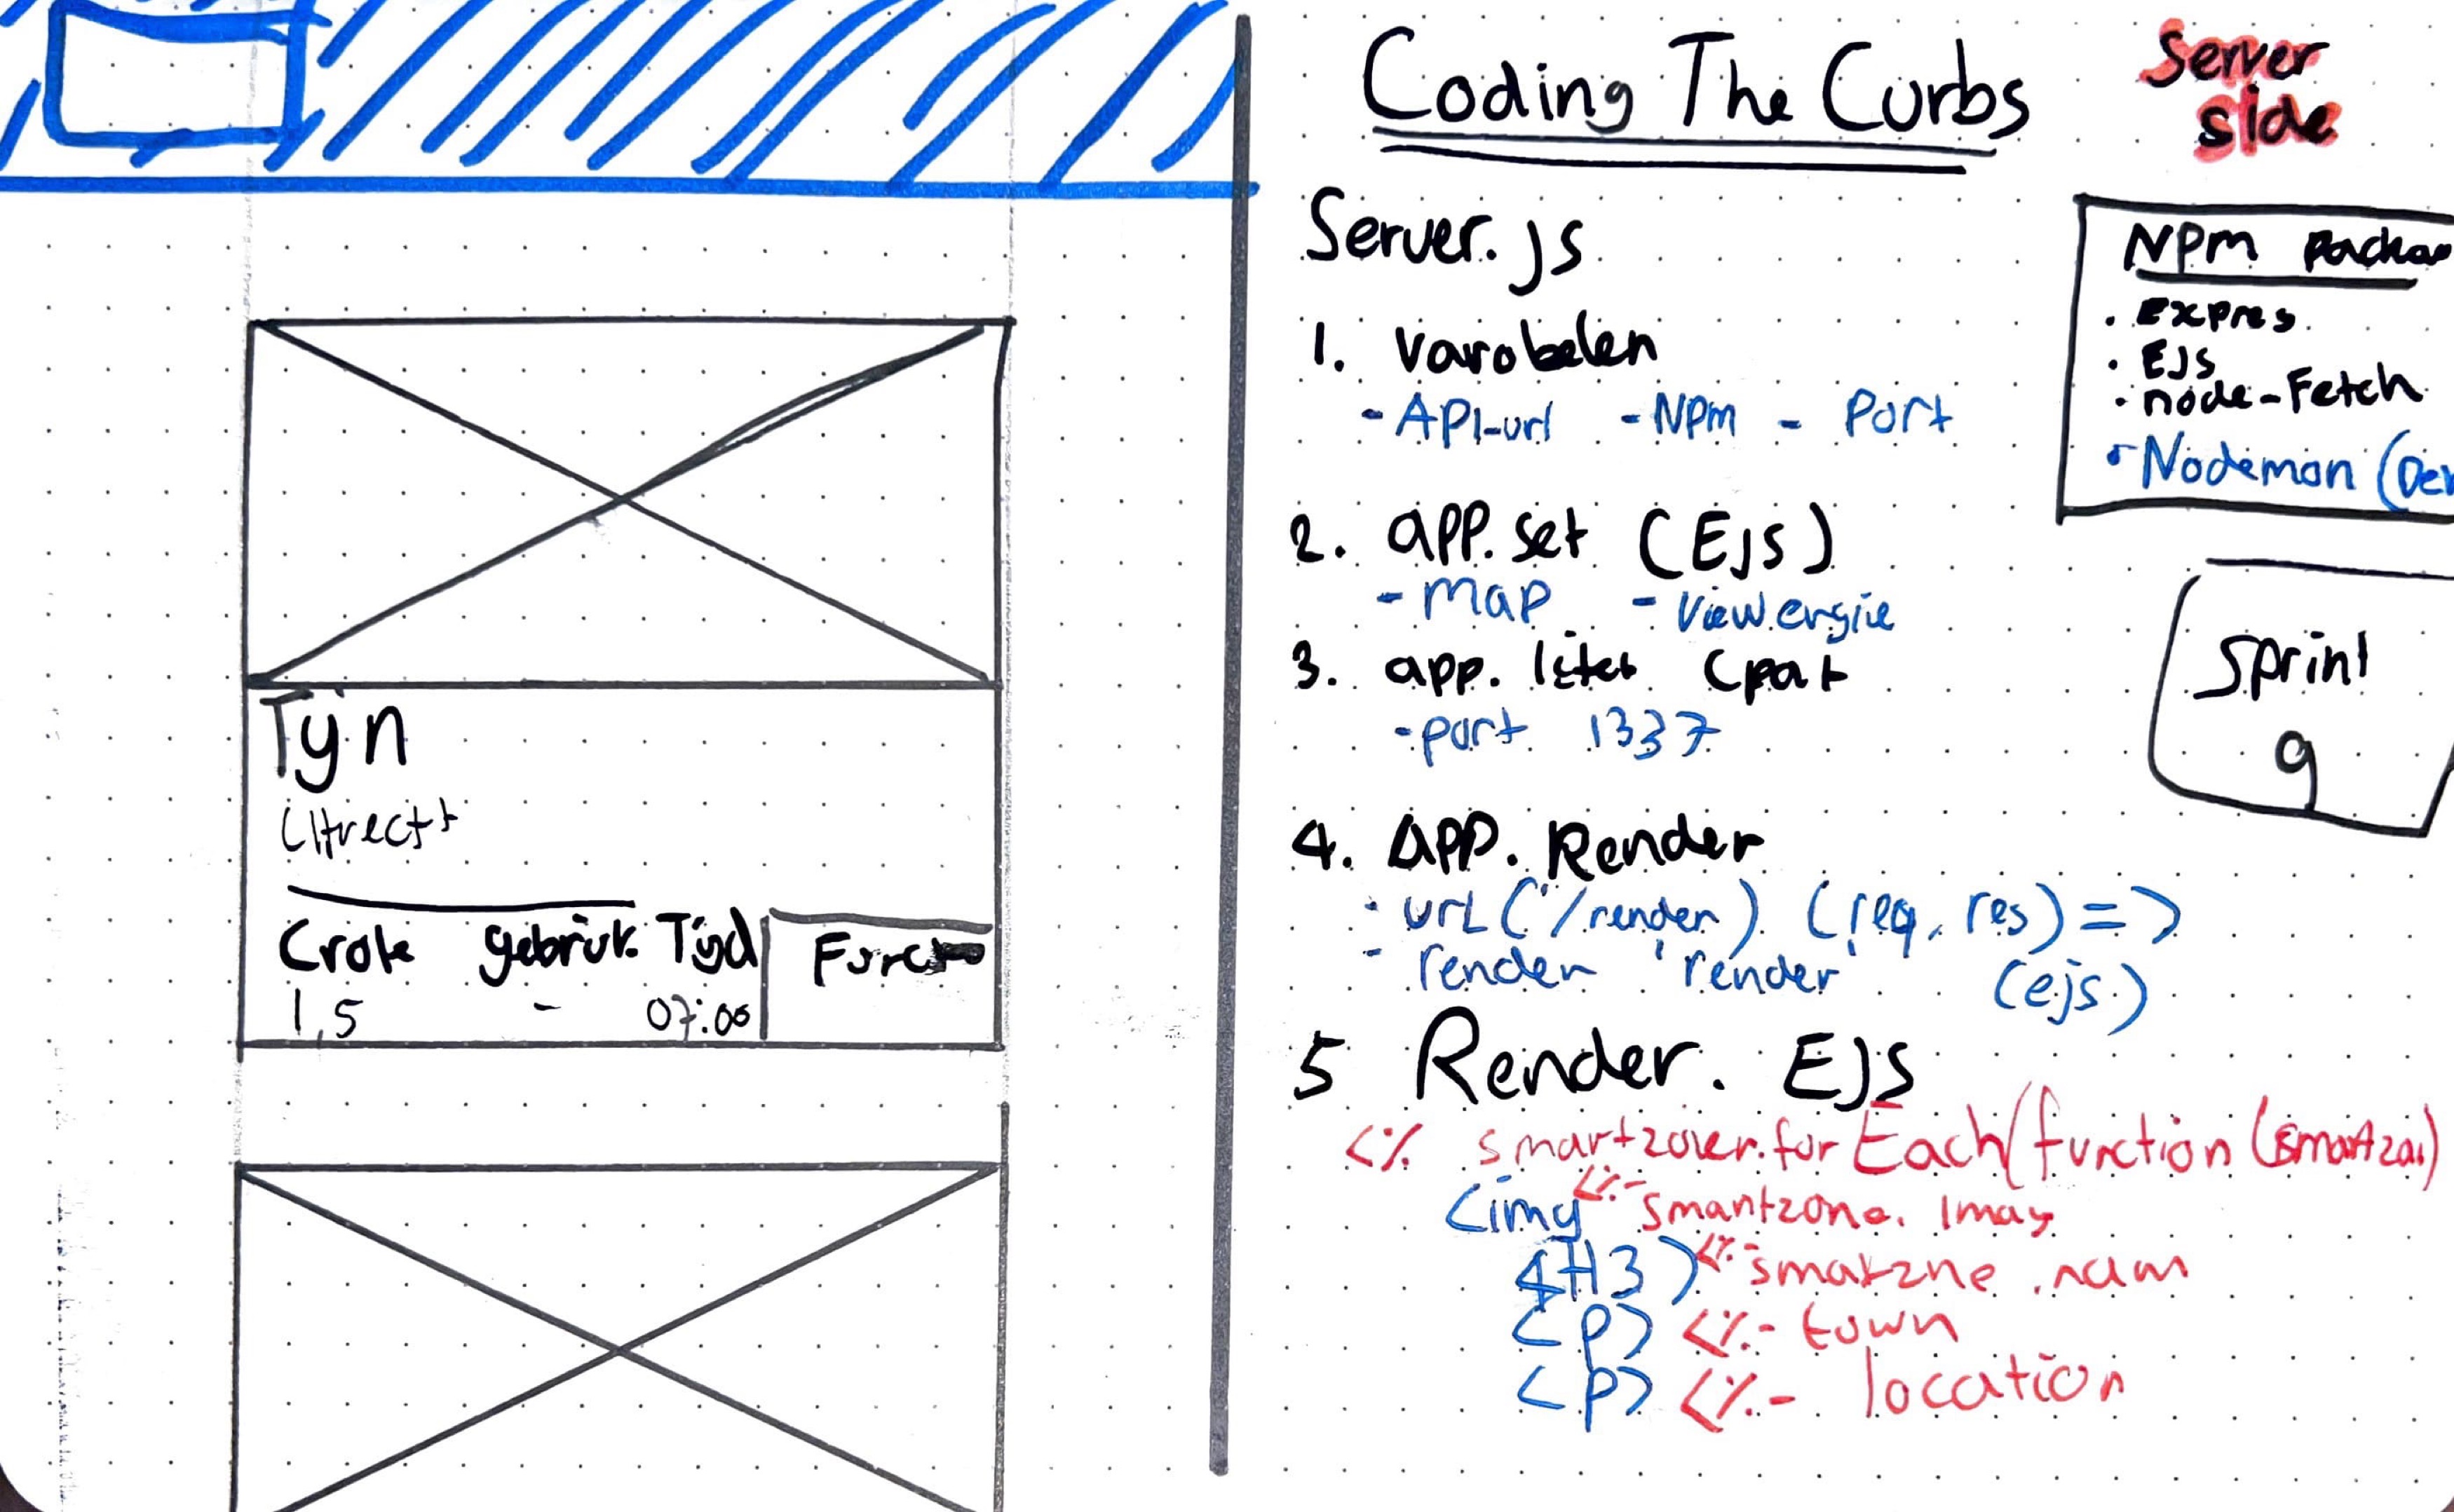 Tÿn
Utrecht
gebruik Tijd
1,5 - 07:00
Coding The Curbs
Server side
Server.js
1. varobelen
- API-url - NPM - Port
2. app.set (EJS)
- map - View engie
3. app.
- port 1337
4. APP. Render
- url ("/render) (req, res) =>
- render 'render' (ejs)
5 Render. EJS
<% .forEach(function (
<img <%- smartzone. Imag
<H3> <%- .nam
<p> <%- town
<p> <%- location
NPM
. Expres
. EJS
. node-Fetch
- Nodemon (Dev
Sprint
9